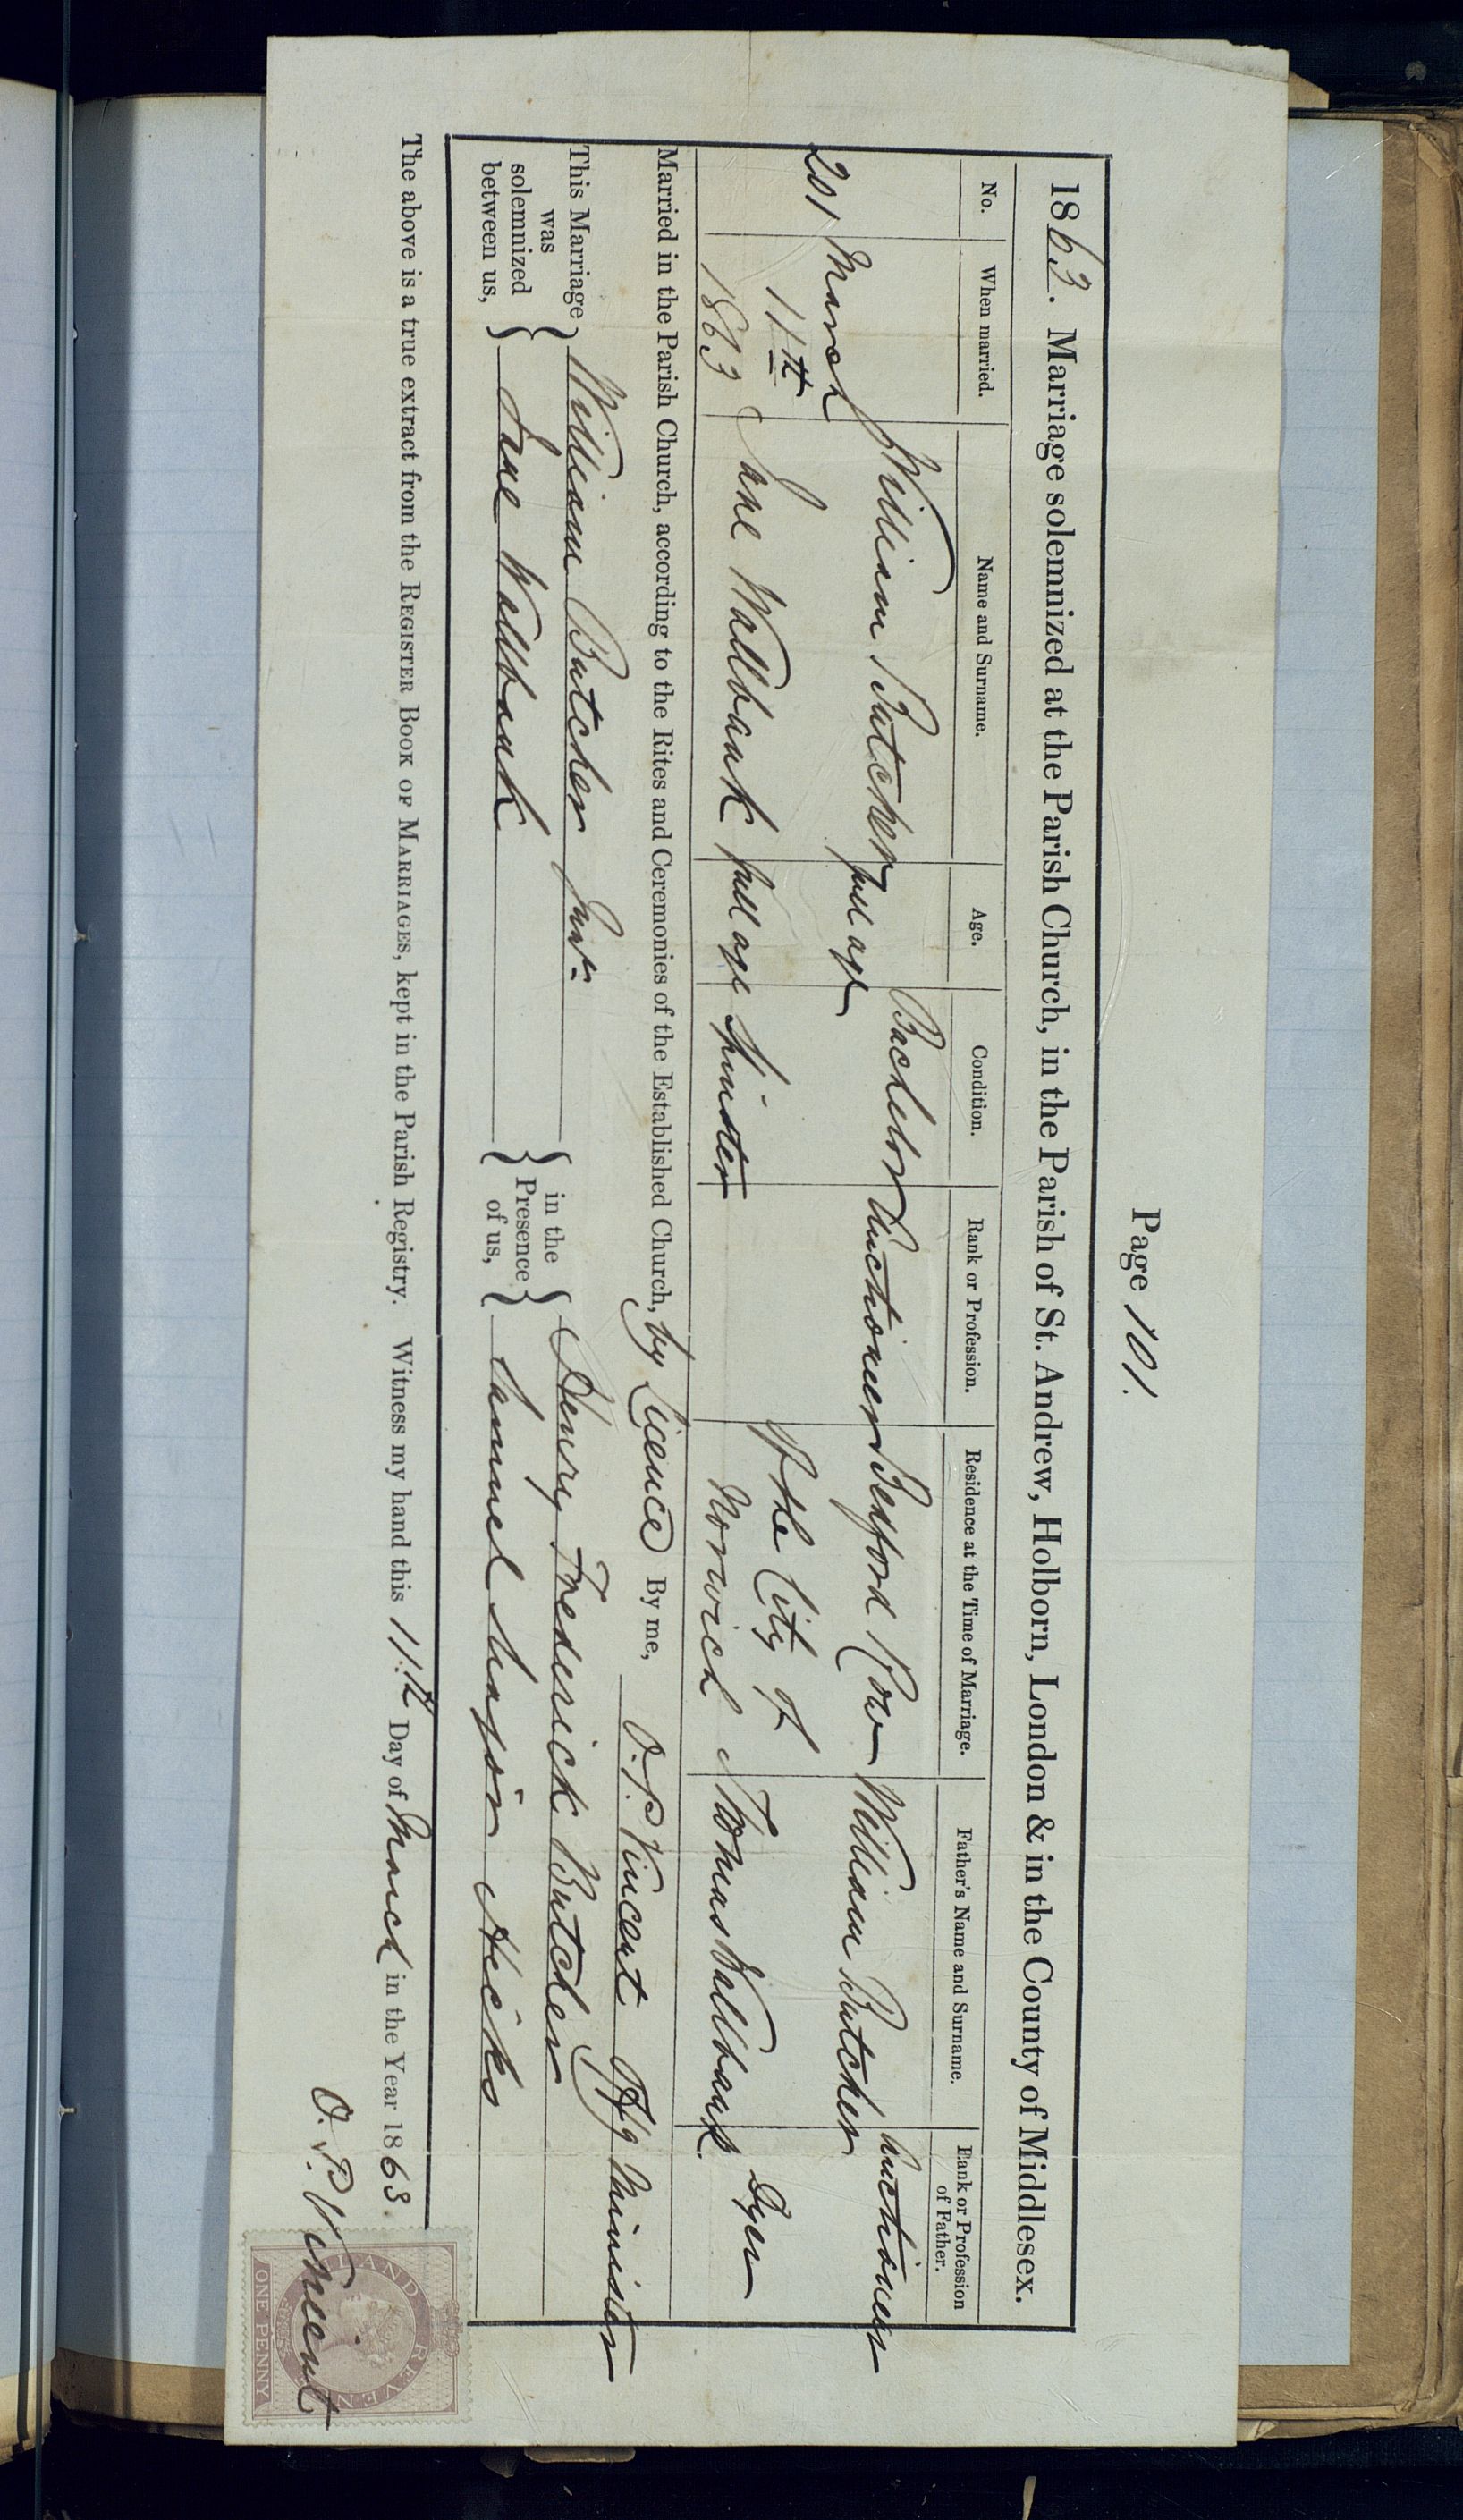 Page 101.
1863. Marriage solemnized at the Parish Church, in the Parish of St. Andrew, Holborn, London & in the County of Middlesex.
No. When married. Name and Surname. Age. Condition. Rank or Profession. Residence at the Time of Marriage. Father's Name and Surname. Rank or Profession of Father.
201 March 11th 1863
William Butcher full age Bachelor Auctioneer Bedford Row William Butcher Auctioneer
Jane Wallbank full age Spinster of the City of Norwich Thomas Wallbank. Dyer
Married in the Parish Church, according to the Rites and Ceremonies of the Established Church, by Licence By me, O. P. Vincent Offg Minister
This Marriage was solemnized between us, William Butcher Junr. Jane Wallbank in the Presence of us, Henry Frederick Butcher Samuel Hicks
The above is a true extract from the REGISTER BOOK OF MARRIAGES, kept in the Parish Registry. Witness my hand this 11th Day of March in the Year 1863.
O. P. Vincent
LAND REVEN
ONE PENNY